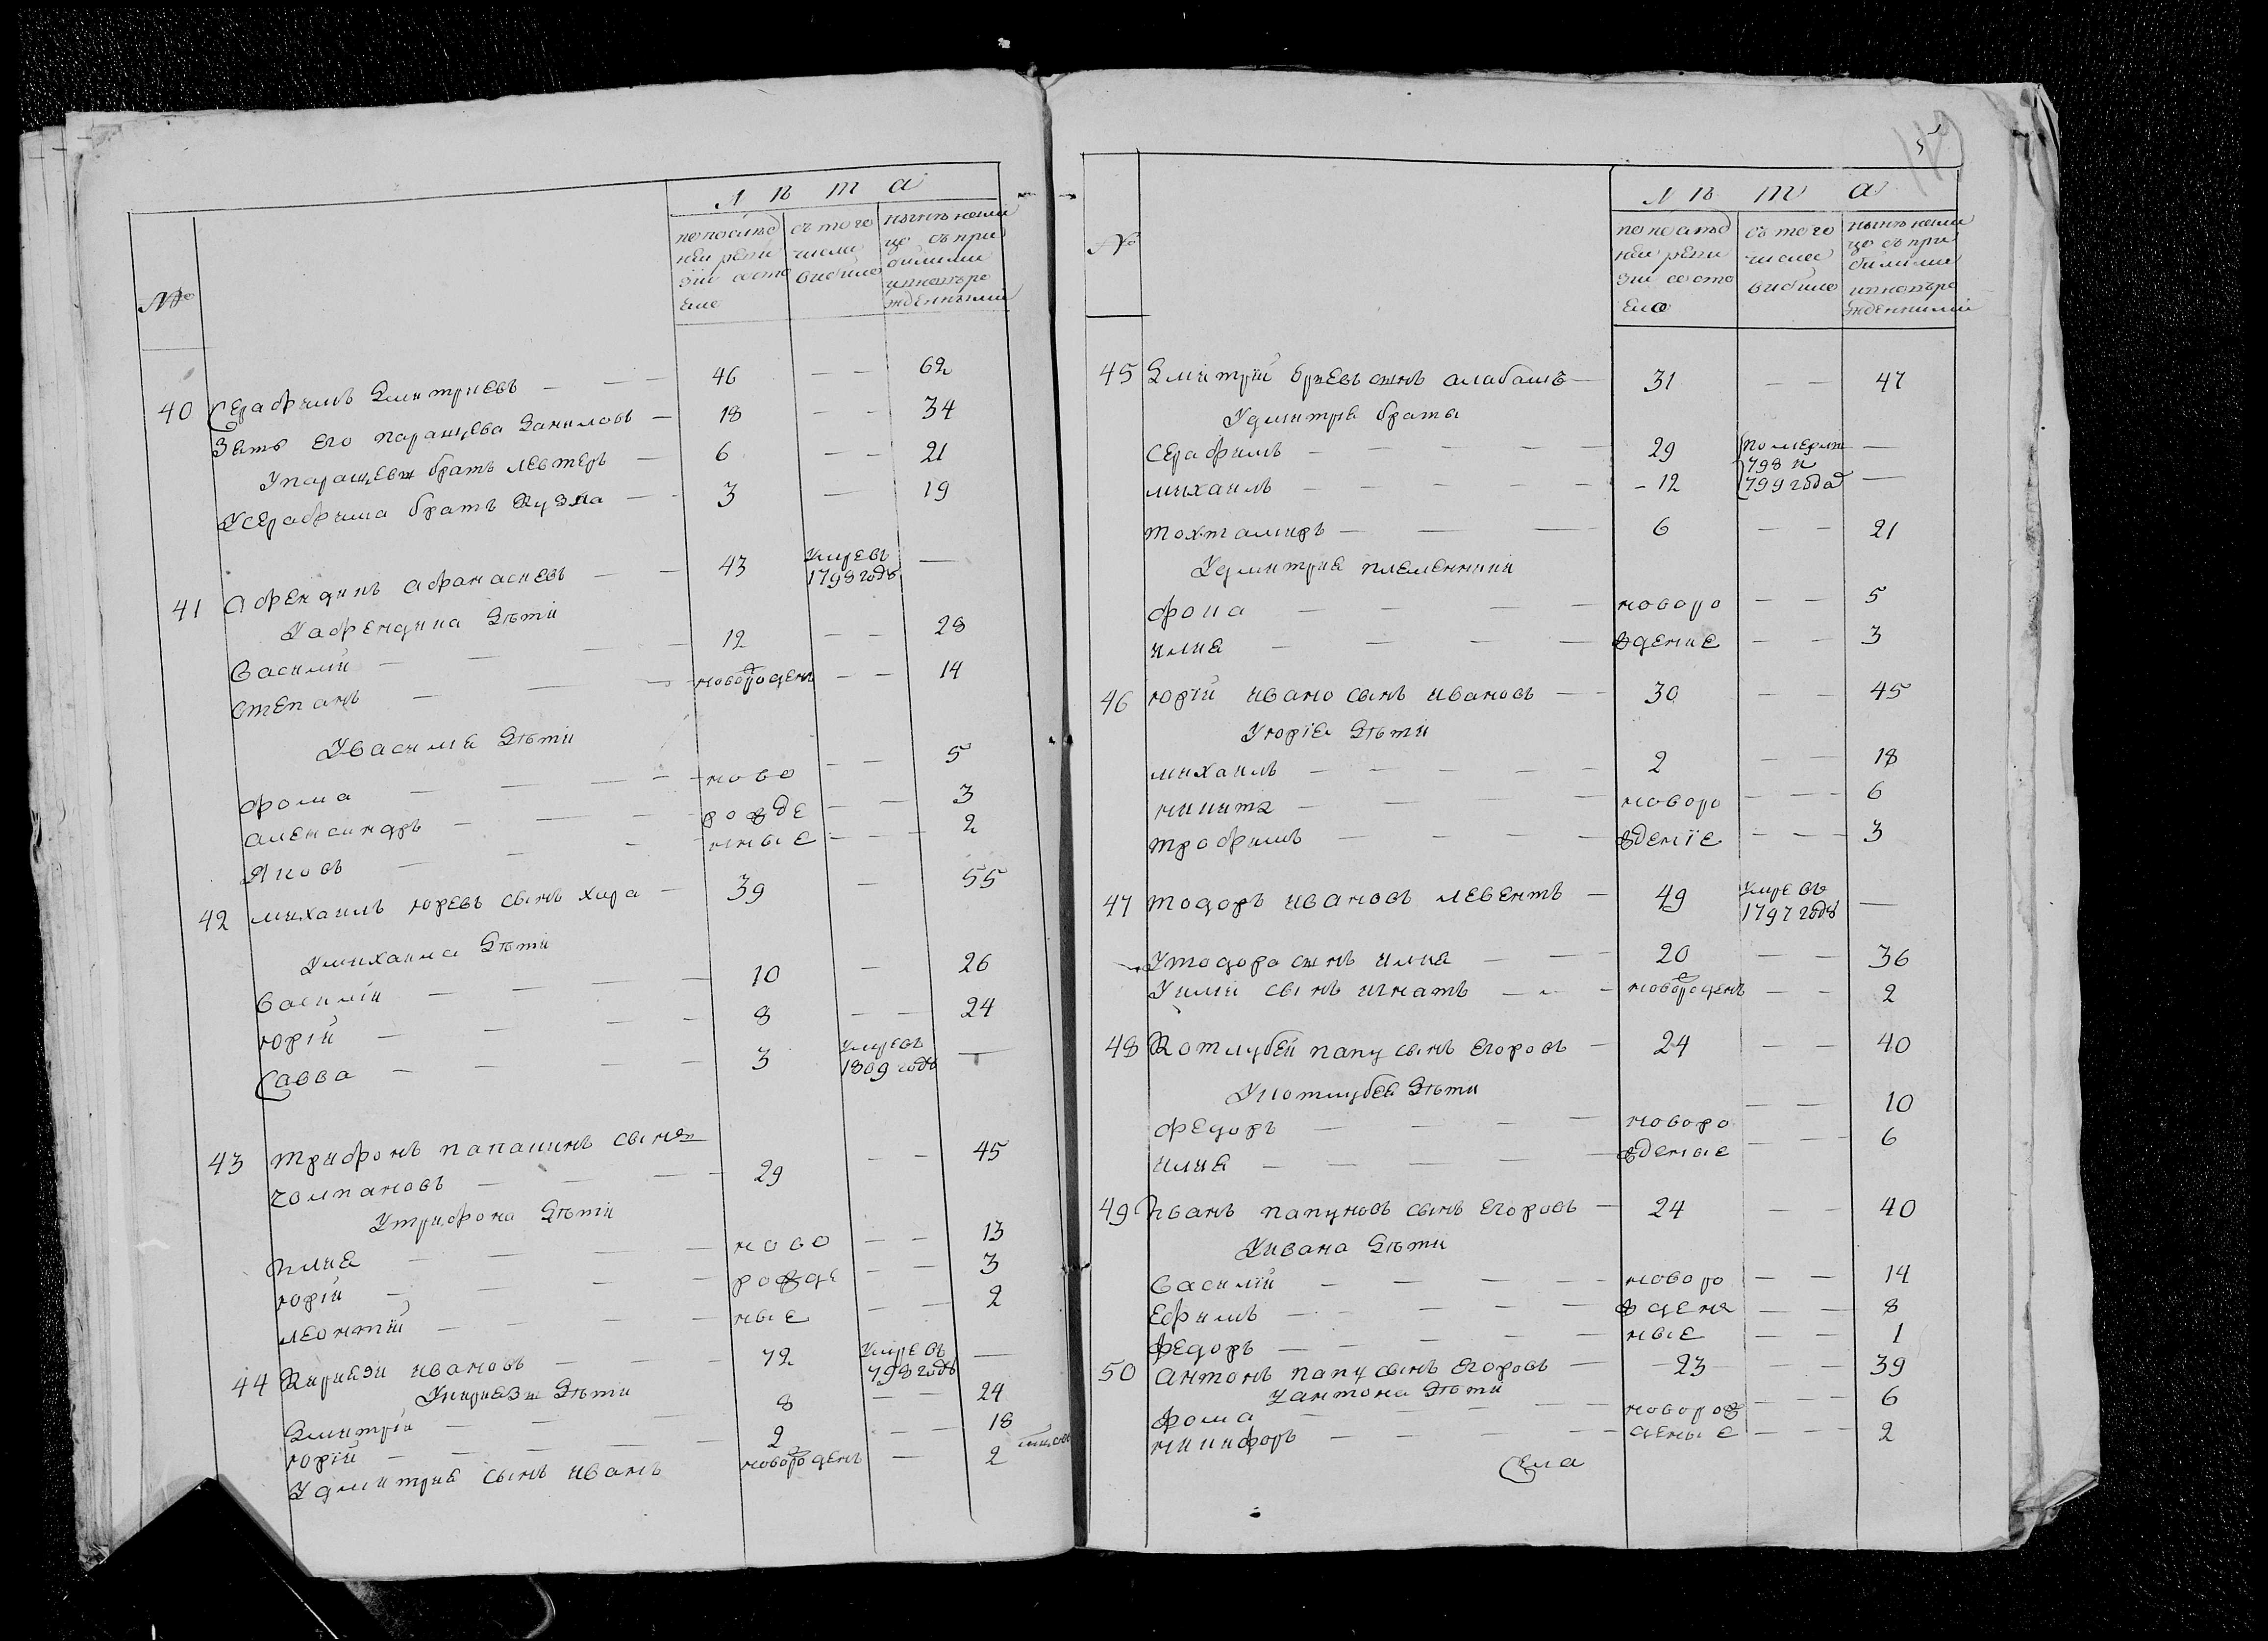 Лѣта
№
по послѣд
ней реви
зіи состо
яло
съ того
числа
выбыло
нынѣ нали
цо съ при
былыми
и новоро
жденными
40 Серафимъ Дмитриевъ — — — 46 — — 62
Зять его паращева Даниловъ — 18 — — 34
Упаращевы братъ левтеръ — 6 — — 21
Усерафима братъ Кузма — — 3 — 19
41 Афендикъ афанасиевъ — — 43 умре въ 1798 годѣ —
Уафендика Дѣти
Василій — — — — 12 — — 28
Степанъ — — — новорожденъ — — 14
Увасилія Дѣти
фома — — — — ново — — 5
александръ — — — — рожде — — 3
Яковъ — — — нные — — — 2
42 михаилъ юревъ сынъ хара — 39 — 55
Умихаила Дѣти
Василій — — — — 10 — 26
юрій — — — — 8 — — 24
Савва — — — — 3 умре въ 1809 годѣ —
43 трифонъ папакинъ сынъ
чолпановъ — — — — 29 — — 45
Утрифона Дѣти
илиа — — — — ново — — 13
юрій — — — — рожде — — 3
леонтій — — — — ные — — 2
44 Кириязи ивановъ — — — 72 умре въ 798 годѣ —
Укириязы Дѣти
Дмитрій — — — 8 — — 24
юрій — — — — — 2 — — 18
Удмитрия сынъ иванъ новорожденъ — 2
5
Лѣта
№
по послѣд
ней реви
зіи состо
яло
съ того
числа
выбыло
нынѣ нали
цо съ при
былыми
и новоро
жденными
45 Дмитрій юриевъ сынъ алабашъ — 31 — — 47
Удмитрия браты
серафимъ — — — — 29 померли —
михаилъ — — — — — 12 798 и 799 года —
тохтамиръ — — — 6 — — 21
Удмитрия племенники
фома — — — — новоро — — 5
илиа — — — — ждение — — 3
46 юрій ивано сынъ ивановъ — — 30 — — 45
Уюрія Дѣти
михаилъ — — — — — 2 — — 18
никита — — — — новоро — — — 6
трофимъ — — — — жденіе — — — 3
47 тодоръ ивановъ левентъ — 49 умре въ 1797 годѣ —
Утодора сынъ илиа — — — 20 — — 36
Уилии сынъ игнатъ — — — новорожденъ — — 2
48 Котлубей папу сынъ егоровъ — 24 — — 40
Укотлубея Дѣти
федоръ — — — — новоро — — 10
илиа — — — — — жденые — — — 6
49 иванъ папуновъ сынъ егоровъ — 24 — — 40
Уивана Дѣти
василій — — — — — новоро — — 14
Ефимъ — — — — — ждены — — 8
федоръ — — — — — ные — — 1
50 антонъ папу сынъ егоровъ — 23 — — 39
Уантона Дѣти
фома — — — — — новорож — — 6
никифоръ — — — — — деные — — — 2
Села